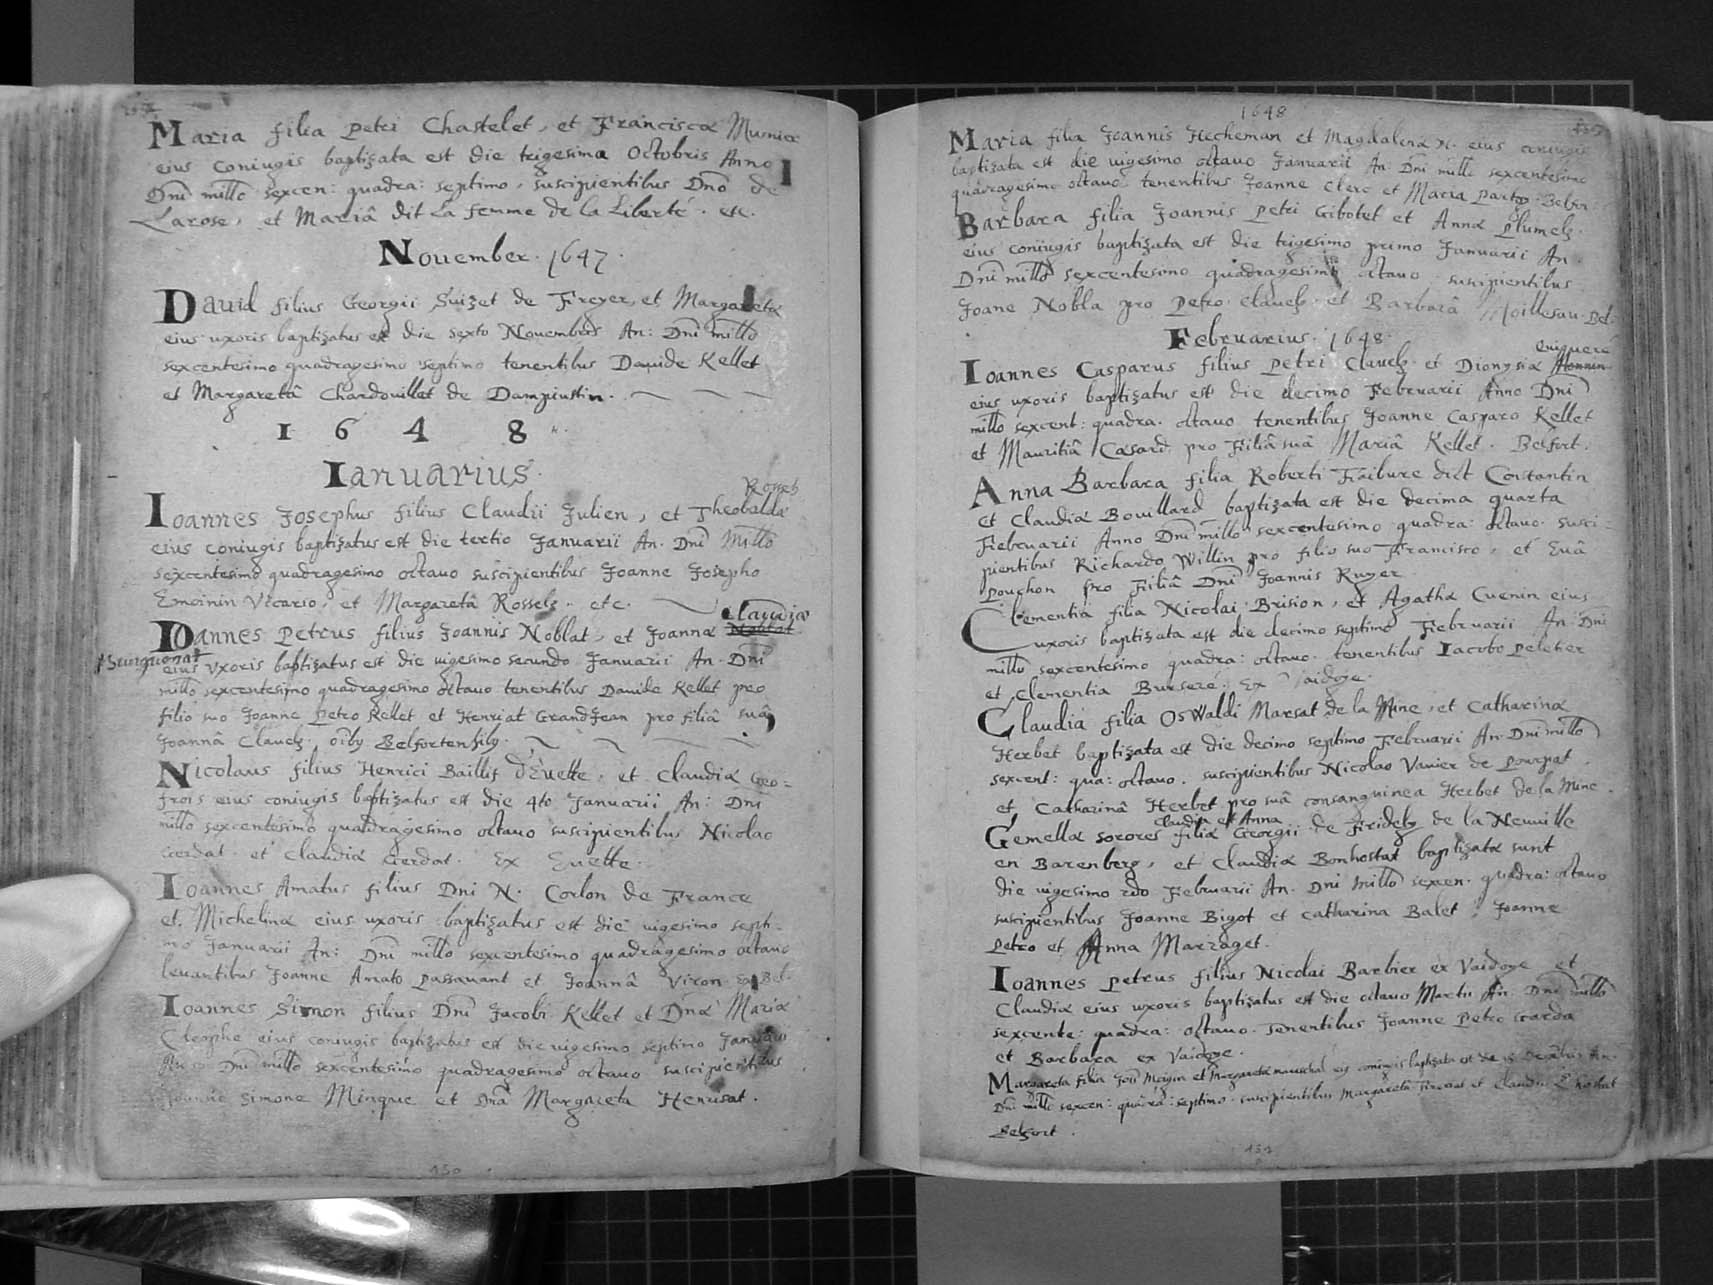 Maria filia Petri Chastelet, et Franciscæ Munier
eius coniugis baptizata est die trigesima Octobris Anno
Dni millo sexcen: quadra: septimo, suscipientibus Dno de
Larose, et Mariâ dit La femme de la Liberté. etc.
November. 1647.
Dauid filius Georgii Suizet de Freyer, et Margareta
eius uxoris baptizatus est die sexto Nouembris An: Dni millo
sexcentesimo quadragesimo septimo tenentibus Dauide Kellet
et Margaretâ Chardouillet de Dampiustin.
1648
Ianuarius.
Rosselz
Ioannes Josephus filius Claudii Julien, et Theobaldæ
eius coniugis baptizatus est die tertio Januarii An. Dni Millo
sexcentesimo quadragesimo octauo suscipientibus Joanne Josepho
Emoinin Vicario, et Margaretâ Rosselz. etc.
Claudiæ
Ioannes Petrus filius Joannis Noblat, et Joannæ Noblat
Burquenat
eius uxoris baptizatus est die uigesimo secundo Januarii An. Dni
millo sexcentesimo quadragesimo octauo tenentibus Dauide Kellet pro
filio suo Joanne Petro Kellet et Henriat GrandJean pro filiâ suâ
Joannâ Clauelz, oiby Belfortensiby.
Nicolaus filius Henrici Baillif d'Euette, et Claudiæ Geo=
frois eius coniugis baptizatus est die 4to Januarii An: Dni
millo sexcentesimo quadragesimo octauo suscipientibus Nicolao
Cerdat et Claudiâ Cerdat. Ex Euette.
Ioannes Amatus filius Dni N. Corlon de France
et Michelinæ eius uxoris baptizatus est die uigesimo septi-
mo Januarii An: Dni millo sexcentesimo quadragesimo octauo
leuantibus Joanne Amato Passauant et Joannâ Viron. Ex Bel.
Ioannes Simon filius Dni Jacobi Kellet et Dnæ Mariæ
Cleophe eius coniugis baptizatus est die uigesimo septimo Januarii
Anno Dni millo sexcentesimo quadragesimo octauo suscipientibus
Joanne Simone Minque et Dnâ Margareta Henrisat.
150
1648
Maria filia Joannis Hecheman et Magdalenæ N. eius coniugis
baptizata est die uigesimo octauo Januarii An. Dni millo sexcentesimo
quadragesimo octauo tenentibus Joanne Clerc et Maria Belfor.
Barbara filia Joannis Petri Gibotet et Annæ Plumelz.
eius coniugis baptizata est die trigesimo primo Januarii An.
Dni millo sexcentesimo quadragesimo octauo suscipientibus
Joane Nobla pro Petro Clauelz et Barbarâ Moillesau. Bel.
Februarius. 1648.
Ioannes Casparus filius Petri Clauelz et Dionysiæ
eius uxoris baptizatus est die decimo Februarii Anno Dni
millo sexcent: quadra. octauo tenentibus Joanne Casparo Kellet
et Mauritiâ Casard pro Filiâ suâ Mariâ Kellet. Belfort.
Anna Barbara filia Roberti Faibure dict Constantin
et Claudiæ Bouillard baptizata est die decima quarta
Februarii Anno Dni millo sexcentesimo quadra: octauo. susci=
pientibus Richardo Willin pro filio suo Francisco, et Euâ
Pouchon pro Filiâ Dni Joannis Ruyer
Clementia filia Nicolai Brision, et Agathæ Cuenin eius
uxoris baptizata est die decimo septimo Februarii An. Dni
millo sexcentesimo quadra: octauo. tenentibus Iacobo Peletier
et Clementia Burseré. Ex Vaidoye.
Claudia filia OsWaldi Marsat de la Mine, et Catharinæ
Herbet baptizata est die decimo septimo Februarii An. Dni millo
sexcent: qua: octauo. suscipientibus Nicolao Vauier de Pourpat
et Catharinâ Herbet pro suâ consanguinea Herbet de la Mine.
Claudia et Anna
Gemellæ sorores filiæ Georgii de Fridelz de la Neuuille
en Barenberg, et Claudiæ Bonhostat baptizatæ sunt
die uigesimo 2do Februarii An. Dni millo sexcen. quadra: octauo
suscipientibus Joanne Bigot et Catharina Balet, Joanne
Petro et Anna Marzaget.
Ioannes Petrus filius Nicolai Barbier ex Vaidoye et
Claudiæ eius uxoris baptizatus est die octauo Martii An. Dni millo
sexcente: quadra: octauo. Tenentibus Joanne Petro
et Barbara ex Vaidoye.
Margareta filia Jois Moigin et Margaretæ mareschal eius coniugis baptizata est die Decembris An.
Dni millo sexcen: quadra: septimo. suscipientibus Margaretâ et Claudio
Belfort.
151